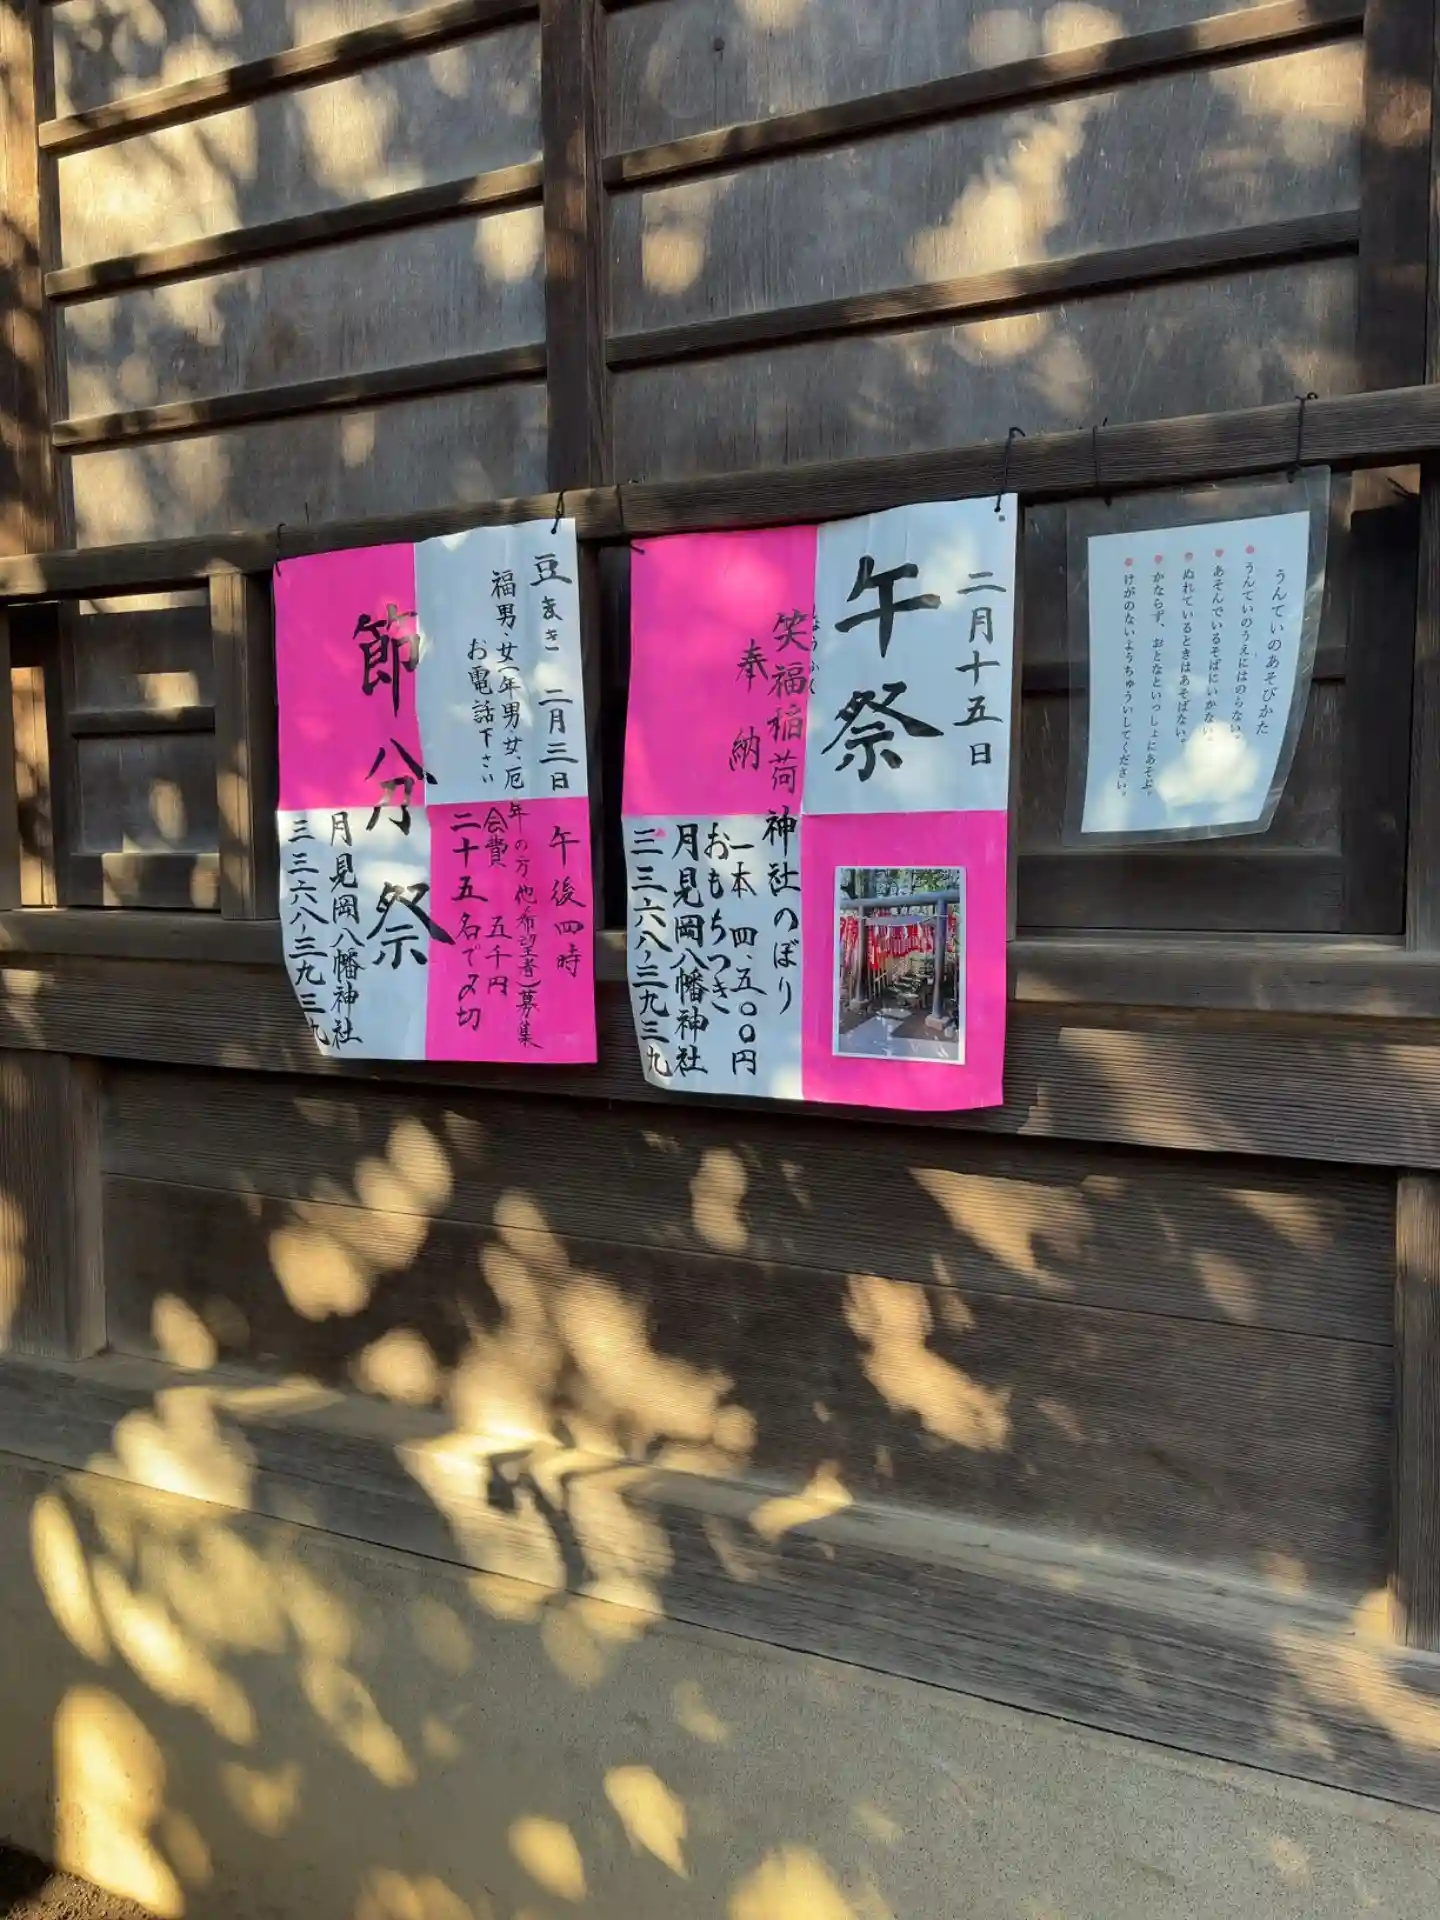 うんていのあそびかた
うんていのうえにはのらない。
あそんでいるそばにいかない。
ぬれているときはあそばない。
かならず、おとなといっしょにあそぶ。
けがのないようちゅういしてください。
二月十五日
午祭
しょうふく
笑福稲荷神社のぼり
奉納
一本 四、五〇〇円
おもちつき
月見岡八幡神社
三三六八-三九三九
豆まき 二月三日 午後四時
福男・女(年男・女、厄年の方他希望者)募集
お電話下さい
会費 五千円
二十五名で〆切
節分祭
月見岡八幡神社
三三六八-三九三九